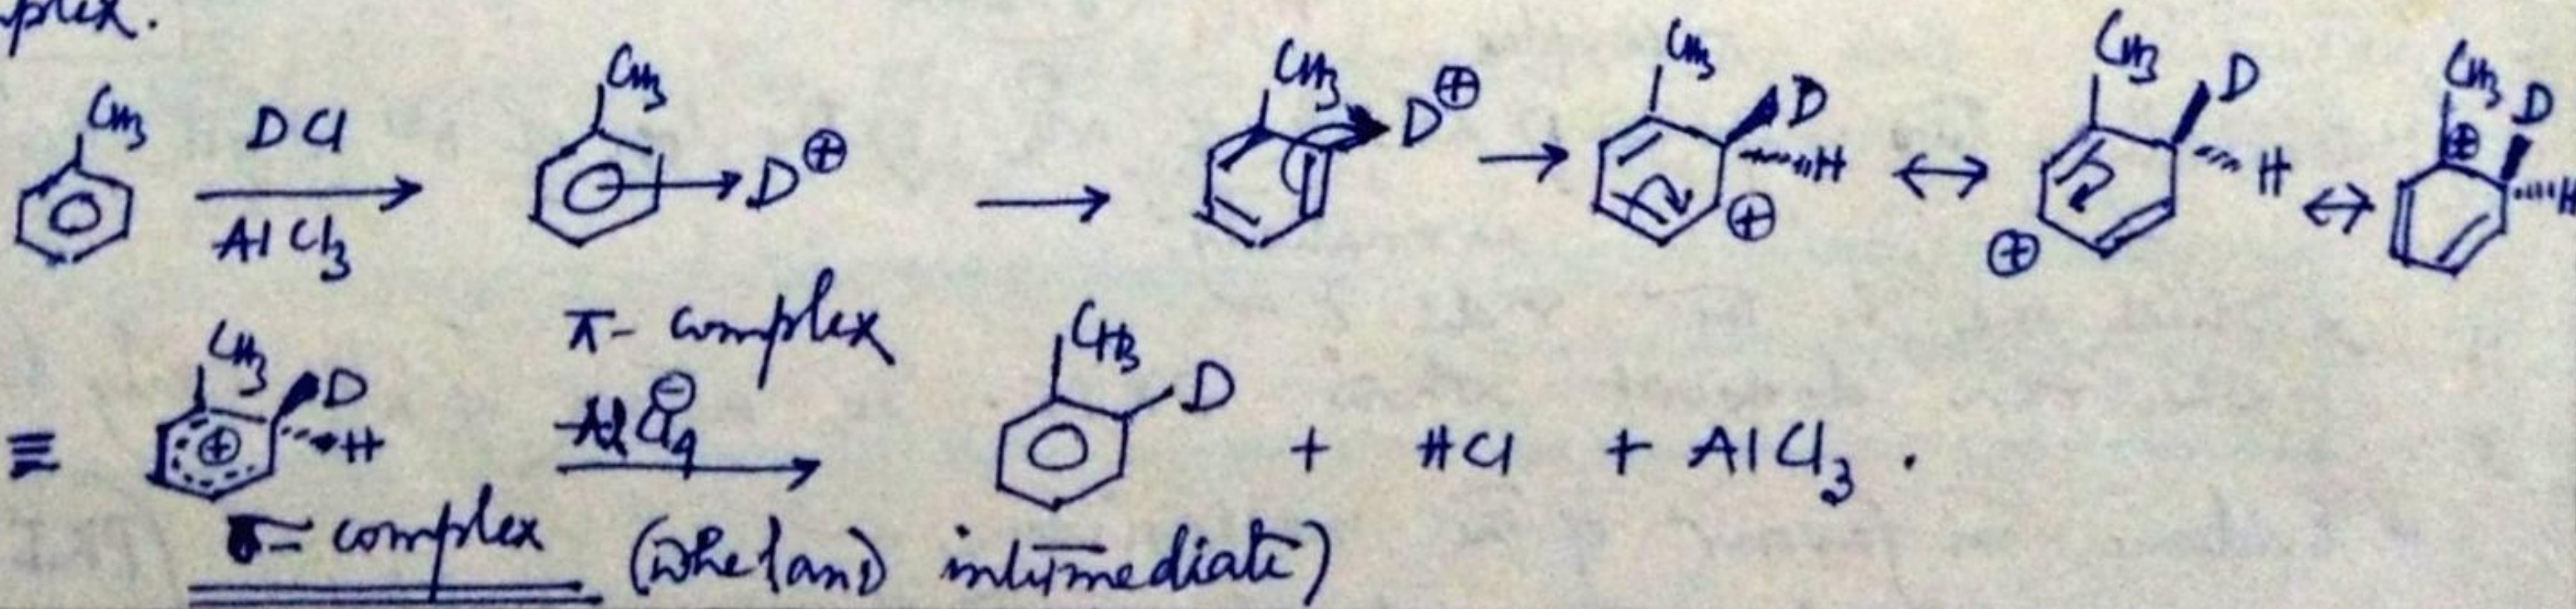 plex.
CH3 DCl AlCl3 CH3 D⊕ CH3 D⊕ CH3 D H ⊕ CH3 D H ⊕ CH3 D ⊕ H
π- complex
≡ CH3 D H ⊕ AlCl4⊖ CH3 D + HCl + AlCl3 .
σ- complex (Wheland intermediate)